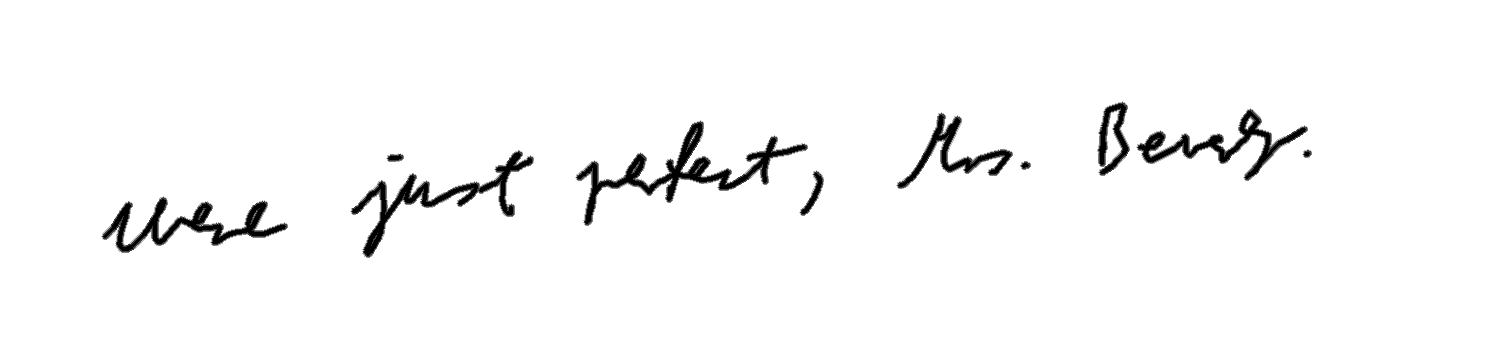 were just perfect, Mrs. Bevas.